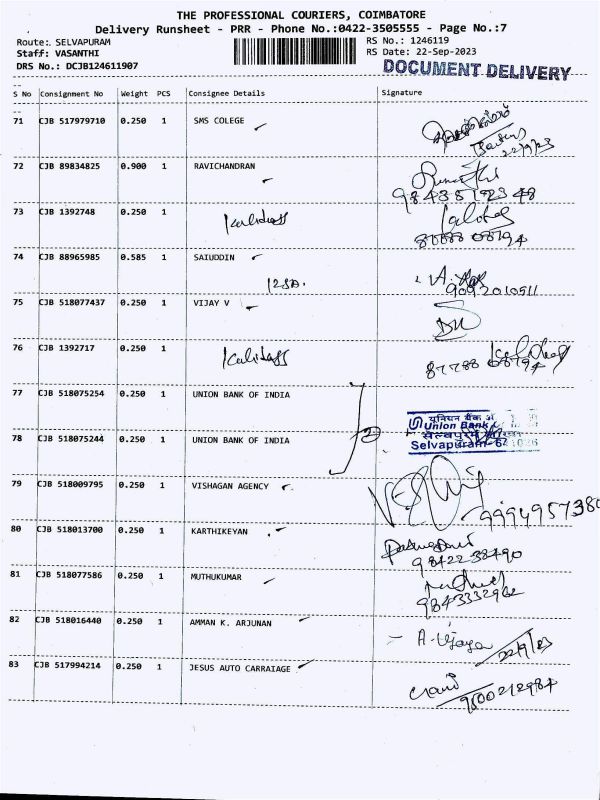 THE PROFESSIONAL COURIERS, COIMBATORE
Delivery Runsheet - PRR - Phone No.:0422-3505555 - Page No.:7
Route: SELVAPURAM RS No.: 1246119
Staff: VASANTHI RS Date: 22-Sep-2023
DRS No.: DCJB124611907 DOCUMENT DELIVERY
S No Consignment No Weight PCS Consignee Details Signature
71 CJB 517979710 0.250 1 SMS COLEGE
22/9/23
72 CJB 89834825 0.900 1 RAVICHANDRAN
9843519248
73 CJB 1392748 0.250 1 Kalidass
74 CJB 88965985 0.585 1 SAIUDDIN
9092010511
75 CJB 518077437 0.250 1 VIJAY V
76 CJB 1392717 0.250 1 Kalidass
87788 08794
77 CJB 518075254 0.250 1 UNION BANK OF INDIA
यूनियन बैंक
Union Bank
78 CJB 518075244 0.250 1 UNION BANK OF INDIA
Selvapuram-641026
79 CJB 518009795 0.250 1 VISHAGAN AGENCY
9994957380
80 CJB 518013700 0.250 1 KARTHIKEYAN
98422-38490
81 CJB 518077586 0.250 1 MUTHUKUMAR
9843332962
82 CJB 518016440 0.250 1 AMMAN K. ARJUNAN
22/9/23
83 CJB 517994214 0.250 1 JESUS AUTO CARRAIAGE
9600212984